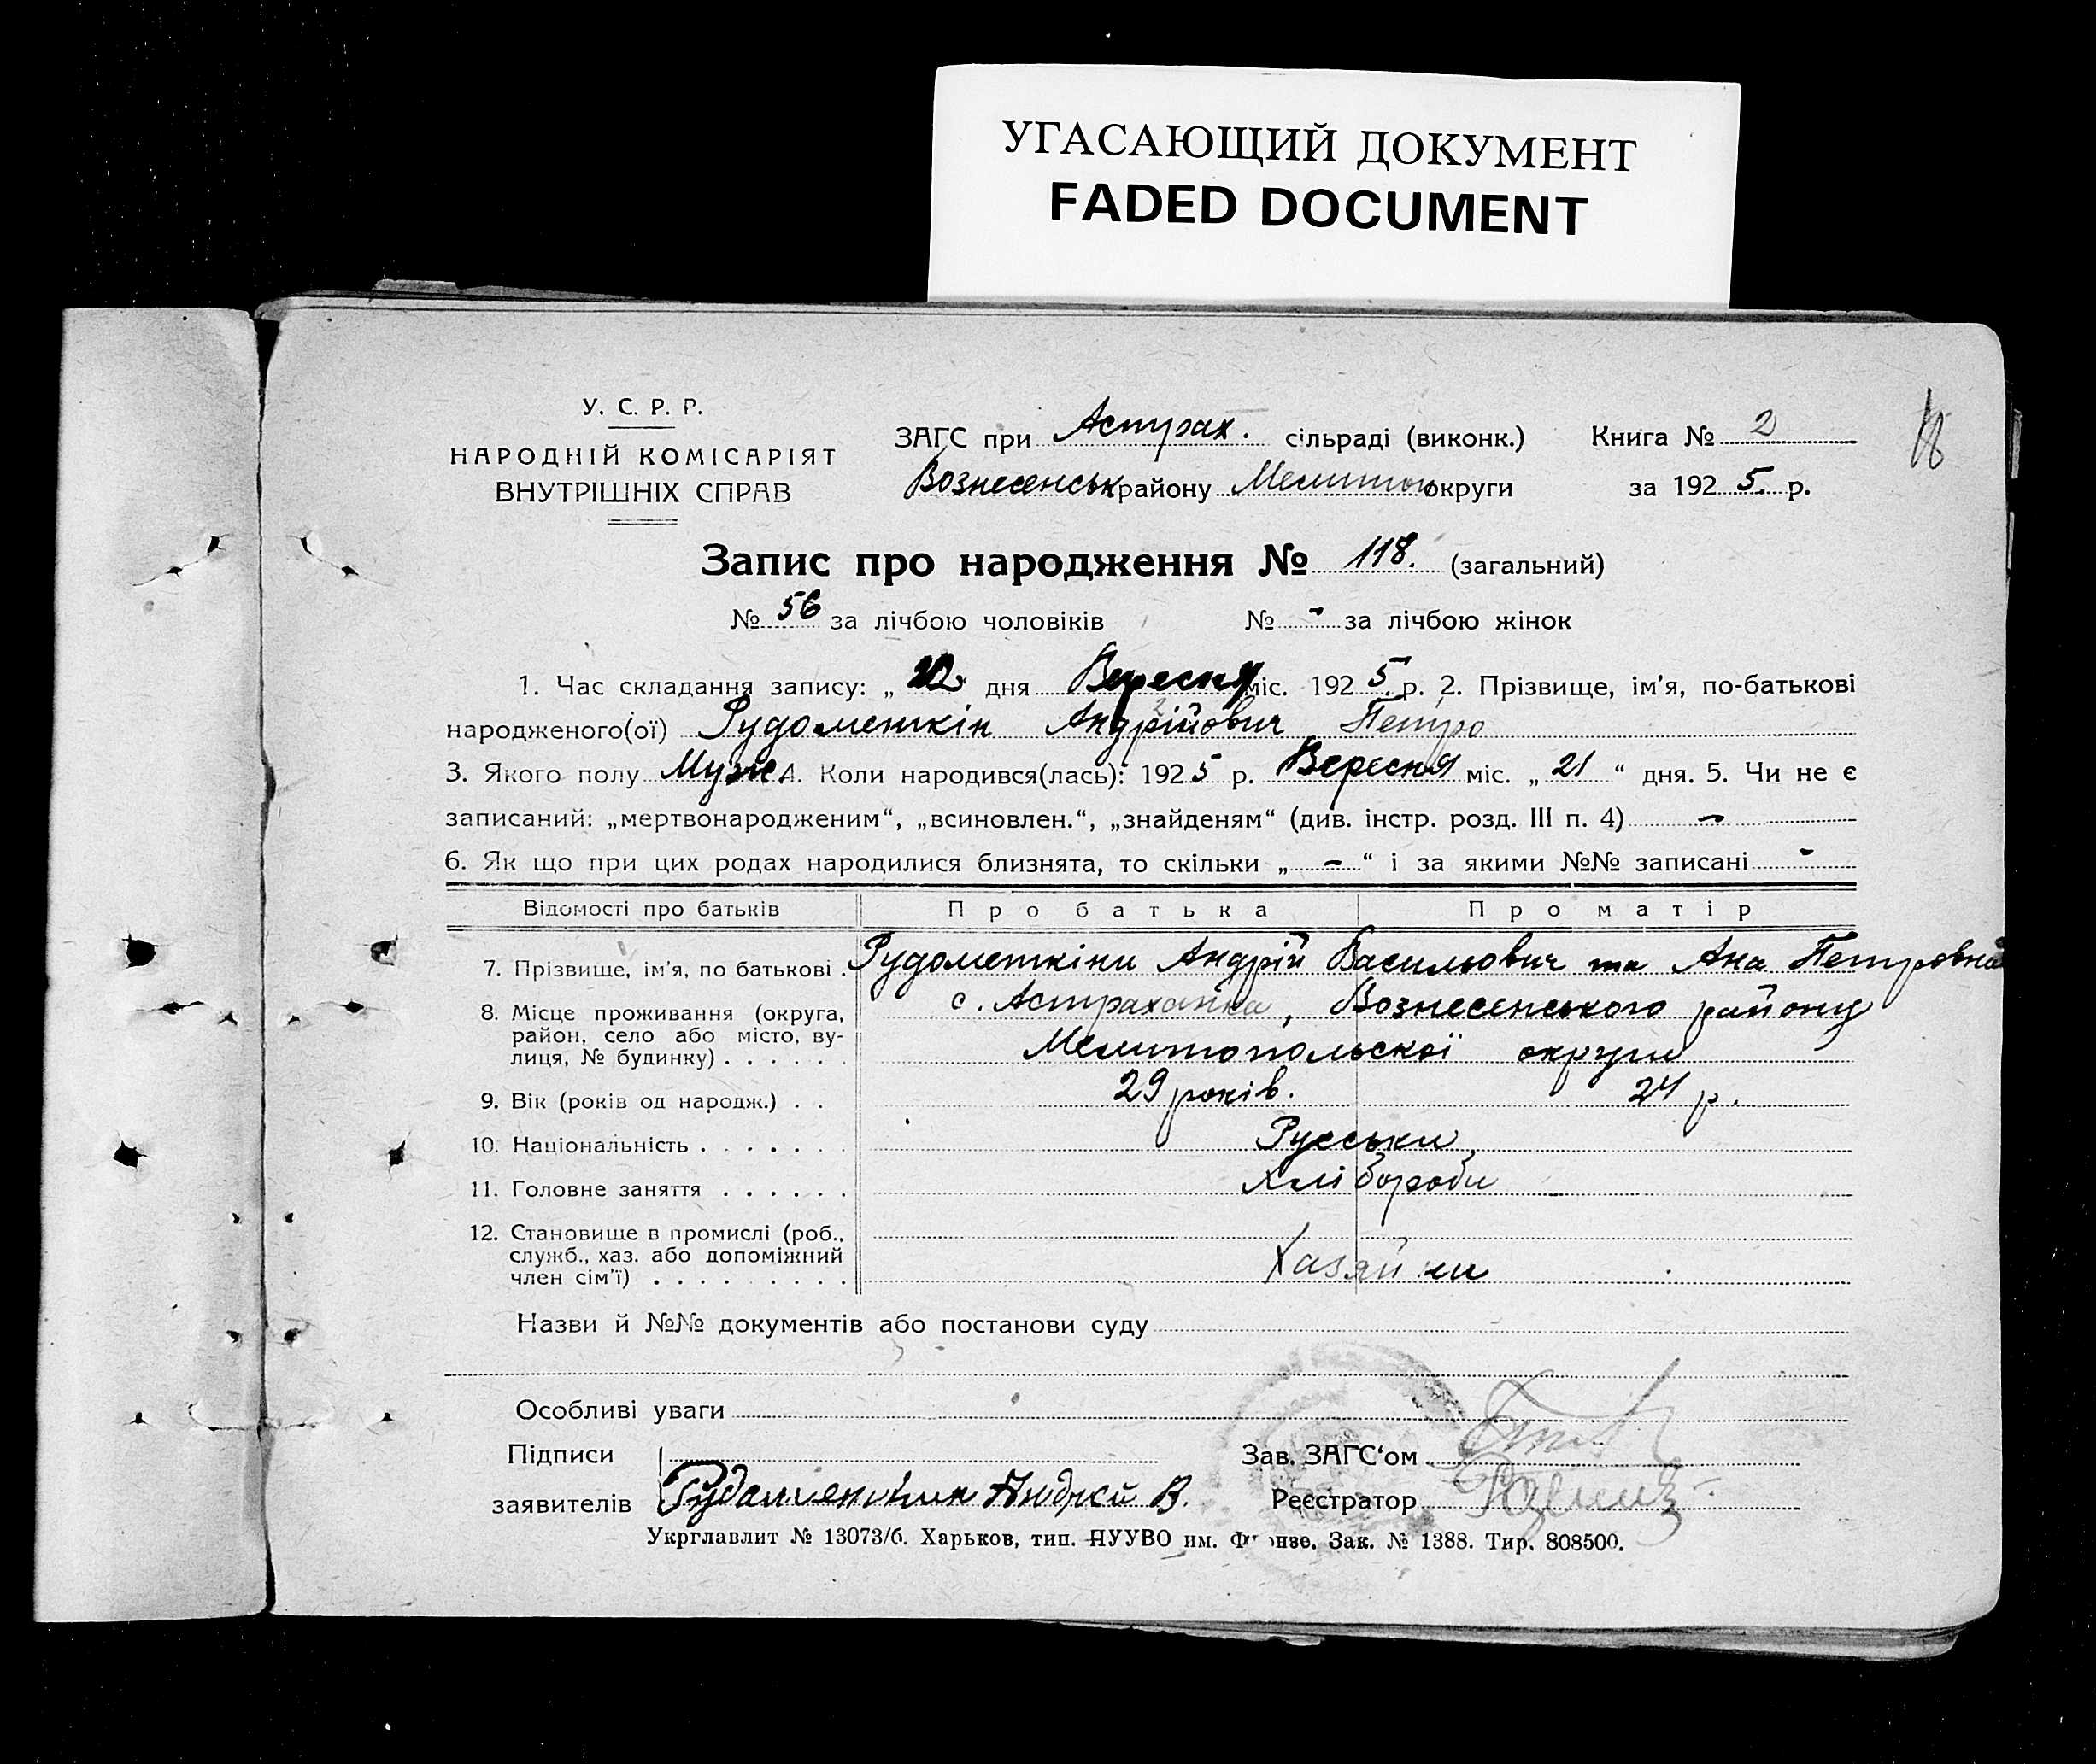 УГАСАЮЩИЙ ДОКУМЕНТ
FADED DOCUMENT
У. С. Р. Р.
НАРОДНІЙ КОМІСАРІЯТ
ВНУТРІШНІХ СПРАВ
ЗАГС при Астрах. сільраді (виконк.) Книга № 2
Вознесенськ району Мелитоп округи за 1925. р.
18
Запис про народження № 118. (загальний)
№ 56 за лічбою чоловіків № - за лічбою жінок
1. Час складання запису: „ “ дня Вересня міс. 1925. р. 2. Прізвище, ім'я, по-батькові
народженого(ої) Рудометкін Андрійович Петро
3. Якого полу Муж. 4. Коли народився(лась): 1925 р. Вересня міс. „21“ дня. 5. Чи не є
записаний: „мертвонародженим“, „всиновлен.“, „знайденям“ (див. інстр. розд. III п. 4) -
6. Як що при цих родах народилися близнята, то скільки „-“ і за якими №№ записані -
Відомості про батьків Про батька Про матір
7. Прізвище, ім'я, по батькові . Рудометкіни Андрій Васильович та Ана Петровна
8. Місце проживання (округа, район, село або місто, ву-лиця, № будинку) . . . . . . с. Астраханка, Вознесенського району
Мелитопольскої округи
9. Вік (років од народж.) . . 29 років. 24 р.
10. Національність . . . . . . . Руськи
11. Головне заняття . . . . . . Хлібороби
12. Становище в промислі (роб., служб., хаз. або допоміжний член сім'ї) . . . . . . . . . Хазяйни
Назви й №№ документів або постанови суду
Особливі уваги
Підписи
заявителів Рудаметкин Андрей В.
Зав. ЗАГС'ом
Реєстратор
Укрглавлит № 13073/б. Харьков, тип. ПУУВО им. Фрунзе. Зак. № 1388. Тир. 808500.